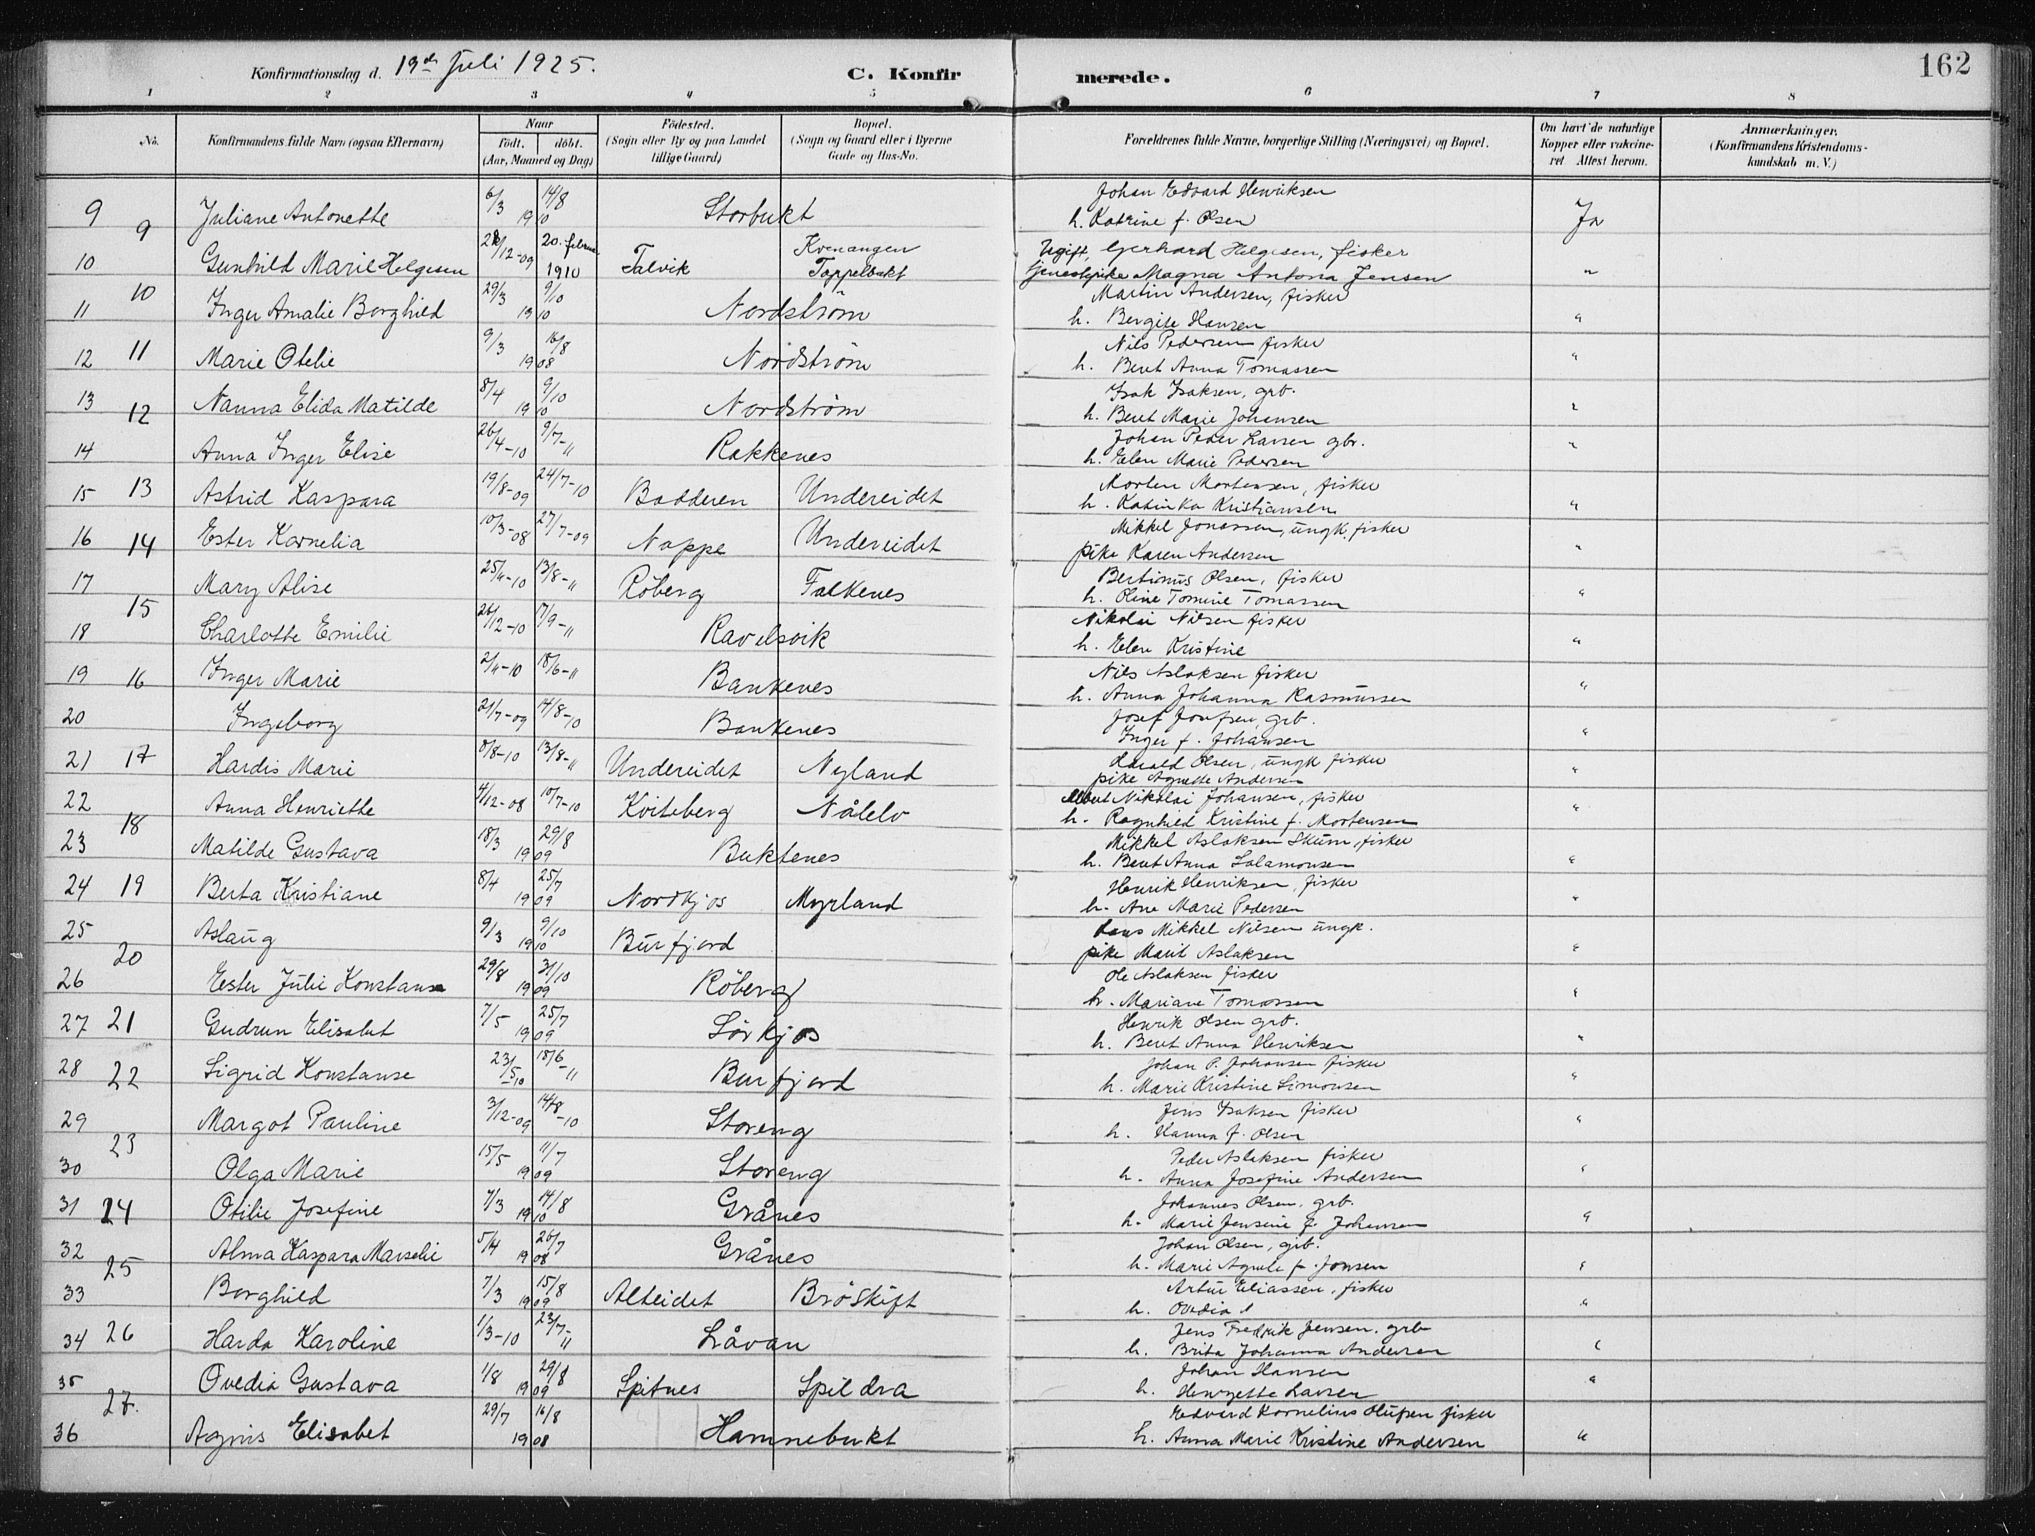 162
Konfirmationsdag d. 19de Juli 1925. C. Konfirmerede.
1 2 3 4 5 6 7 8
No. Konfirmandens fulde Navn (ogsaa Efternavn) Naar födt. döbt. (Aar, Maaned og Dag) Födested. (Sogn eller By og paa Landet tillige Gaard) Bopæl. (Sogn og Gaard eller i Byerne Gade og Hus-No. Forældrenes fulde Navne, borgerlige Stilling (Næringsvei) og Bopæl. Om havt de naturlige Kopper eller vaccineret Attest herom. Anmærkninger. (Konfirmandens Kristendomskundskab m. V.)
9 9 Juliane Antonette 6/3 14/8 1910 Storbukt Johan Edvard Henriksen
h. Katrine f. Olsen Ja
10 Gunhild Marie Helgesen 28/12-09 20. februar 1910 Talvik Kvenangen Toppelbukt Ugift, Gerhard Helgesen, fisker
tjenestepike Magna Antona Jensen "
11 10 Inger Amalie Borghild 29/3 9/10 1910 Nordstrøm Martin Andersen, fisker
h. Bergite Hansen "
12 11 Marie Otelie 9/3 16/8 1908 Nordstrøm Nils Pedersen fisker
h. Beret Anna Tomassen "
13 12 Nanna Elida Matilde 8/4 9/10 1910 Nordstrøm Isak Isaksen, grb.
h. Beret Marie Johansen "
14 Anna Inger Elise 26/4-10 9/7-" Rakkenes Johan Peder Larsen gbr.
h. Elen Marie Pedersen "
15 13 Astrid Kaspara 19/8-09 24/7-10 Badderen Undereidet Morten Mortensen, fisker
h. Katinka Kristiansen "
16 14 Ester Kornelia 10/3-08 27/7-09 Noppe Undereidet Mikkel Jonassen, ungk. fisker
pike Karen Andersen "
17 Mary Alise 25/4-10 13/8-" Røberg Falkenes Bertinus Olsen, fisker
h. Oline Tomine Tomassen "
18 15 Charlotte Emilie 26/12-10 17/9-" Ravelsvik Nikolai Nilsen fisker
h. Elen Kristine "
19 16 Inger Marie 2/4-10 18/6-" Bankenes Nils Aslaksen fisker
h. Anna Johanna Rasmussen "
20 Ingeborg 21/7-09 14/8-10 Bankenes Josef Josefsen, grb.
Inger f. Johansen "
21 17 Hardis Marie 8/8-10 13/8-" Undereidet Nyland Harald Olsen, ungk fisker
pike Agnette Andersen "
22 Anna Henriette 4/12-08 10/7-10 Kviteberg Nålelv Albert Nikolai Johansen, fisker
h. Ragnhild Kristine f. Mortensen "
23 18 Matilde Gustava 18/3 29/8 1909 Buktenes Mikkel Aslaksen Skum, fisker
h. Beret Anna Salamonsen "
24 19 Berta Kristiane 8/4 25/7 1909 Nordkjos Myrland Henrik Henriksen, fisker
h. Ane Marie Pedersen "
25 Aslaug 9/3 9/10 1910 Burfjord Hans Mikkel Nilsen ungk.
pike Marit Aslaksen "
26 20 Ester Julie Konstanse 29/8 31/10 1909 Røberg Ole Aslaksen fisker
h. Mariane Tomassen "
27 21 Gudrun Elisabet 7/5 25/7 1909 Sørkjos Henrik Olsen grb.
h. Beret Anna Henriksen "
28 22 Sigrid Konstanse 23/5 10 18/6-" Burfjord Johan P. Johansen fisker
h. Marie Kristine Simonsen "
29 Margot Pauline 3/12-09 14/8-10 Storeng Jens Isaksen fisker
h. Hanna f. Olsen "
30 23 Olga Marie 15/5 11/7 1909 Storeng Peder Aslaksen fisker
h. Anna Josefine Andersen "
31 24 Otilie Josefine 7/3 14/8 1910 Grånes Johannes Olsen, grb.
h. Marie Jensine f. Johansen "
32 Alma Kaspara Marselie 5/4 26/7 1908 Grånes Johan Olsen, grb.
h. Marie Agnele f. Jonsen "
33 25 Borghild 7/3 15/8 1909 Alteidet Brøskift Artur Eliassen, fisker
h. Ovedia "
34 26 Harda Karoline 1/3-10 23/7-" Låvan Jens Fredrik Jensen. grb
h. Brita Johanna Andersen "
35 Ovedia Gustava 1/8 29/8 1909 Spitnes Spildra Johan Hansen
h. Henryette Larsen "
36 27. Agnis Elisabet 29/7 16/8 1908 Hamnebukt Edvard Kornelius Olufsen fisker
h. Anna Marie Kristine Andersen "